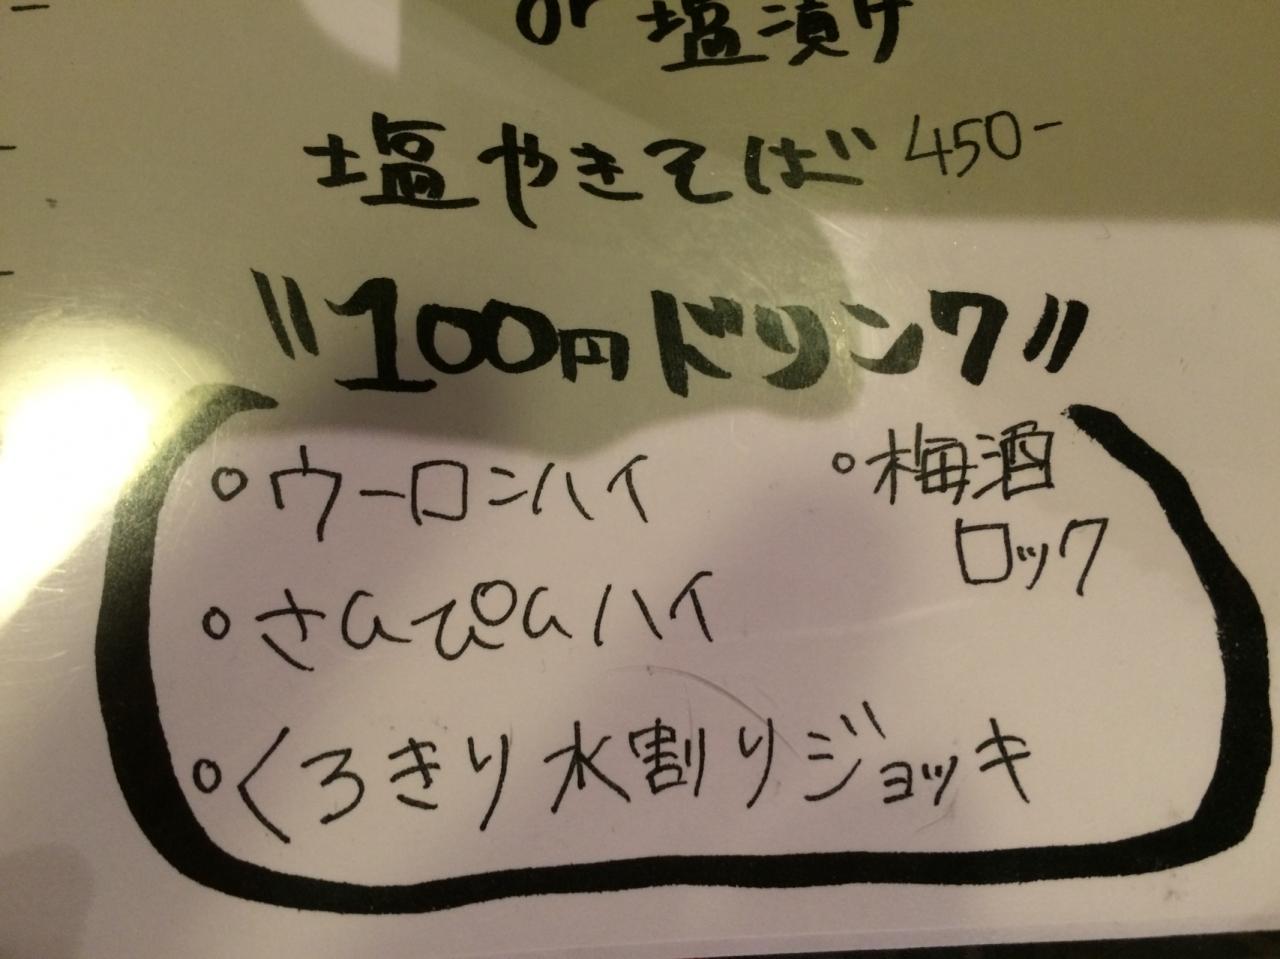 or 塩漬け
塩やきそば 450-
"100円ドリンク"
○ウーロンハイ
○さんぴんハイ
○くろきり水割りジョッキ
○梅酒
ロック